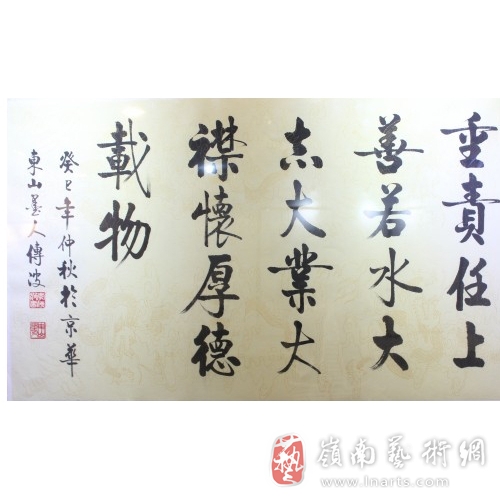 重責任上
善若水大
志大業大
襟懷厚德
載物
癸巳年仲秋於京華
東山墨人傳波
藝
嶺南藝術網
www.lnarts.com